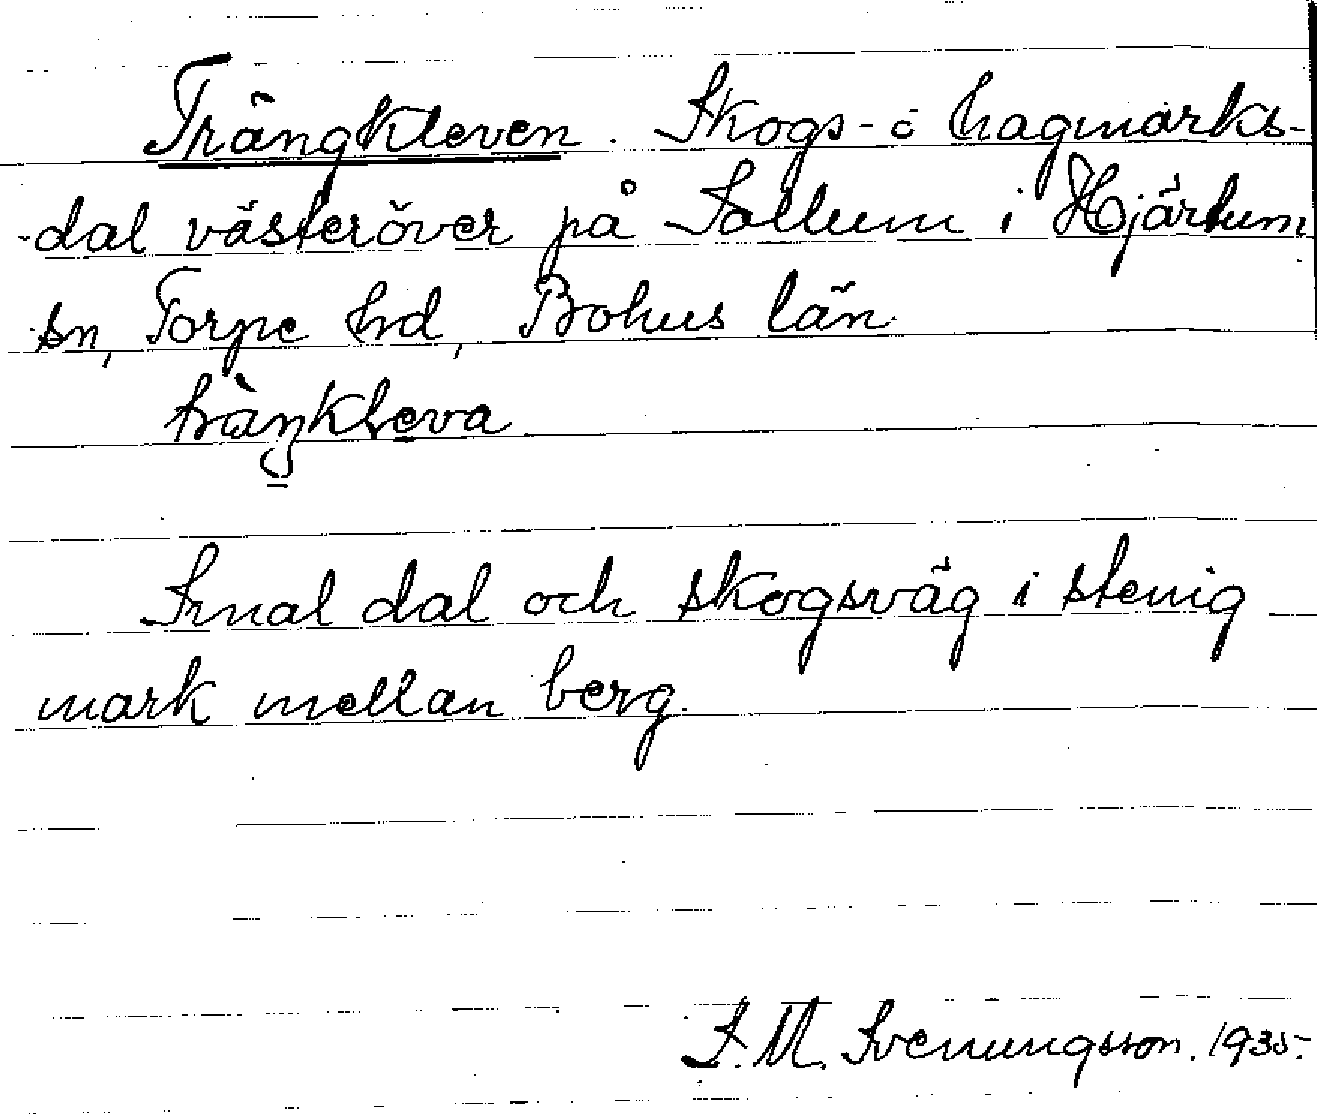 Trängkleven. Skogs- o hagmarks-
dal västeröver på Sollum i Hjärtum
sn, Torpe hd, Bohus län.
Smal dal och skogsväg i stenig
mark mellan berg.
S. M. Svenungsson. 1935.